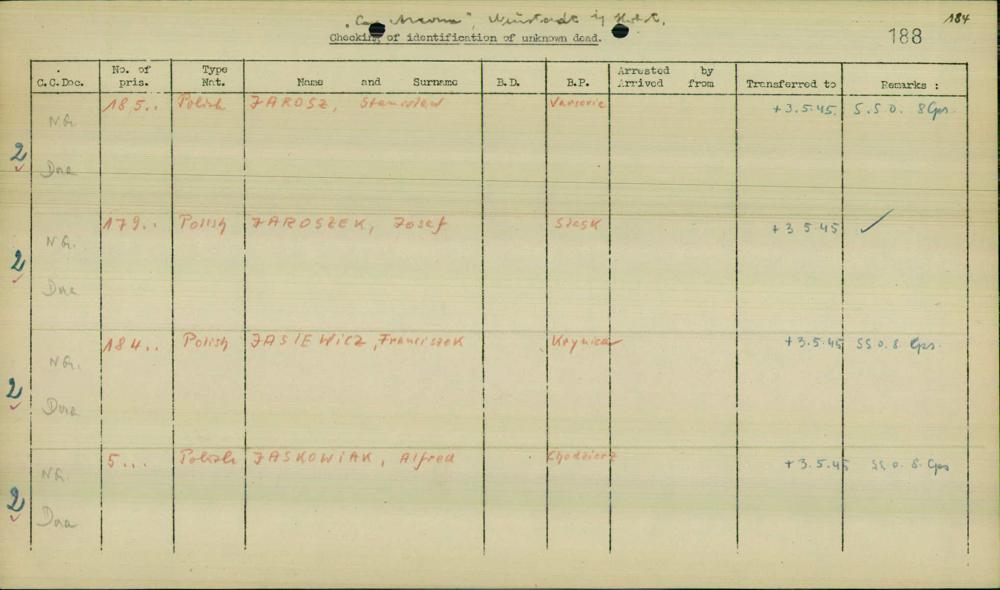 "Cap Arcona", Neustadt i/ Holst.
184
188
Checking of identification of unknown dead.
C.C.Doc. No. of pris. Type Nat. Name and Surname B.D. B.P. Arrested by Arrived from Transferred to Remarks :
185.. Polish JAROSZ, Stanislaw Varsovie +3.5.45. S.S O. 8 Gps.
NG.
2
Dora
179.. Polish JAROSZEK, Josef +3 5.45 ✓
NG.
2
Dora
184.. Polish JASIEWICZ, Franciszek Krynica +3.5.45 SS O. 8 Gps.
NG.
2
Dora
5... Polish JASKOWIAK, Alfred Chodzierz +3.5.45 SS O. 8. Gps
NG.
2
Dora